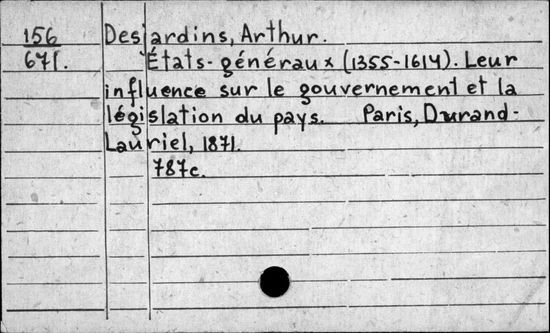 156 Desjardins, Arthur.
671. États-généraux (1355-1614). Leur
influence sur le gouvernement et la
législation du pays. Paris, Durand-
Lauriel, 1871.
787c.